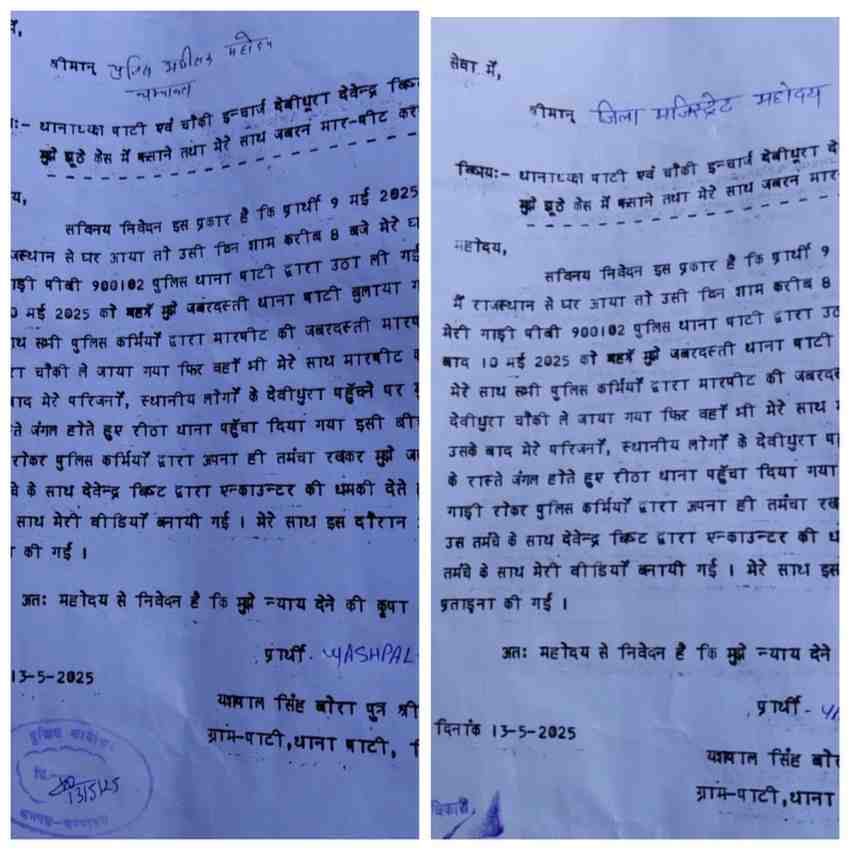 श्रीमान् पुलिस अधीक्षक महोदय
चम्पावत
:- थानाध्यक्ष पाटी एवं चौकी इन्चार्ज देवीधुरा देवेन्द्र बिष्ट
मुझे झूठे केस में फसाने तथा मेरे साथ जबरन मार-पीट कर
य,
सविनय निवेदन इस प्रकार है कि प्रार्थी 9 मई 2025
जस्थान से घर आया तो उसी दिन शाम करीब 8 बजे मेरे घ
गाड़ी पीबी 900102 पुलिस थाना पाटी द्वारा उठा ली गई
0 मई 2025 को मुझे जबरदस्ती थाना पाटी बुलाया ग
थ सभी पुलिस कर्मियों द्वारा मारपीट की जबरदस्ती मारप
रा चौकी ले जाया गया फिर वहाँ भी मेरे साथ मारपीट क
बाद मेरे परिजनों, स्थानीय लोगों के देवीधुरा पहुँचने पर
ते जंगल होते हुए रीठा थाना पहुँचा दिया गया इसी बीच
रोकर पुलिस कर्मियों द्वारा अपना ही तमंचा रखकर मुझे
चे के साथ देवेन्द्र बिष्ट द्वारा एन्काउन्टर की धमकी देते
साथ मेरी वीडियाँ बनायी गई । मेरे साथ इस दौरान
की गई ।
अतः महोदय से निवेदन है कि मुझे न्याय देने की कृपा
प्रार्थी - YASHPAL
13-5-2025
यशपाल सिंह बोरा पुत्र श्री
ग्राम-पाटी, थाना पाटी,
13/5/25
सेवा में,
श्रीमान् जिला मजिस्ट्रेट महोदय
विषयः- थानाध्यक्ष पाटी एवं चौकी इन्चार्ज देवीधुरा दे
मुझे झूठे केस में फसाने तथा मेरे साथ जबरन मार-
महोदय,
सविनय निवेदन इस प्रकार है कि प्रार्थी 9
में राजस्थान से घर आया तो उसी दिन शाम करीब 8
मेरी गाड़ी पीबी 900102 पुलिस थाना पाटी द्वारा उठ
बाद 10 मई 2025 को मुझे जबरदस्ती थाना पाटी
मेरे साथ सभी पुलिस कर्मियों द्वारा मारपीट की जबरदस
देवीधुरा चौकी ले जाया गया फिर वहाँ भी मेरे साथ म
उसके बाद मेरे परिजनों, स्थानीय लोगों के देवीधुरा प
के रास्ते जंगल होते हुए रीठा थाना पहुँचा दिया गया
गाड़ी रोकर पुलिस कर्मियों द्वारा अपना ही तमंचा रख
उस तमंचे के साथ देवेन्द्र बिष्ट द्वारा एन्काउन्टर की ध
तमंचे के साथ मेरी वीडियाँ बनायी गई । मेरे साथ इस
प्रताड़ना की गई ।
अतः महोदय से निवेदन है कि मुझे न्याय देने
प्रार्थी - YA
दिनांक 13-5-2025
यशपाल सिंह बोर
ग्राम-पाटी, थाना